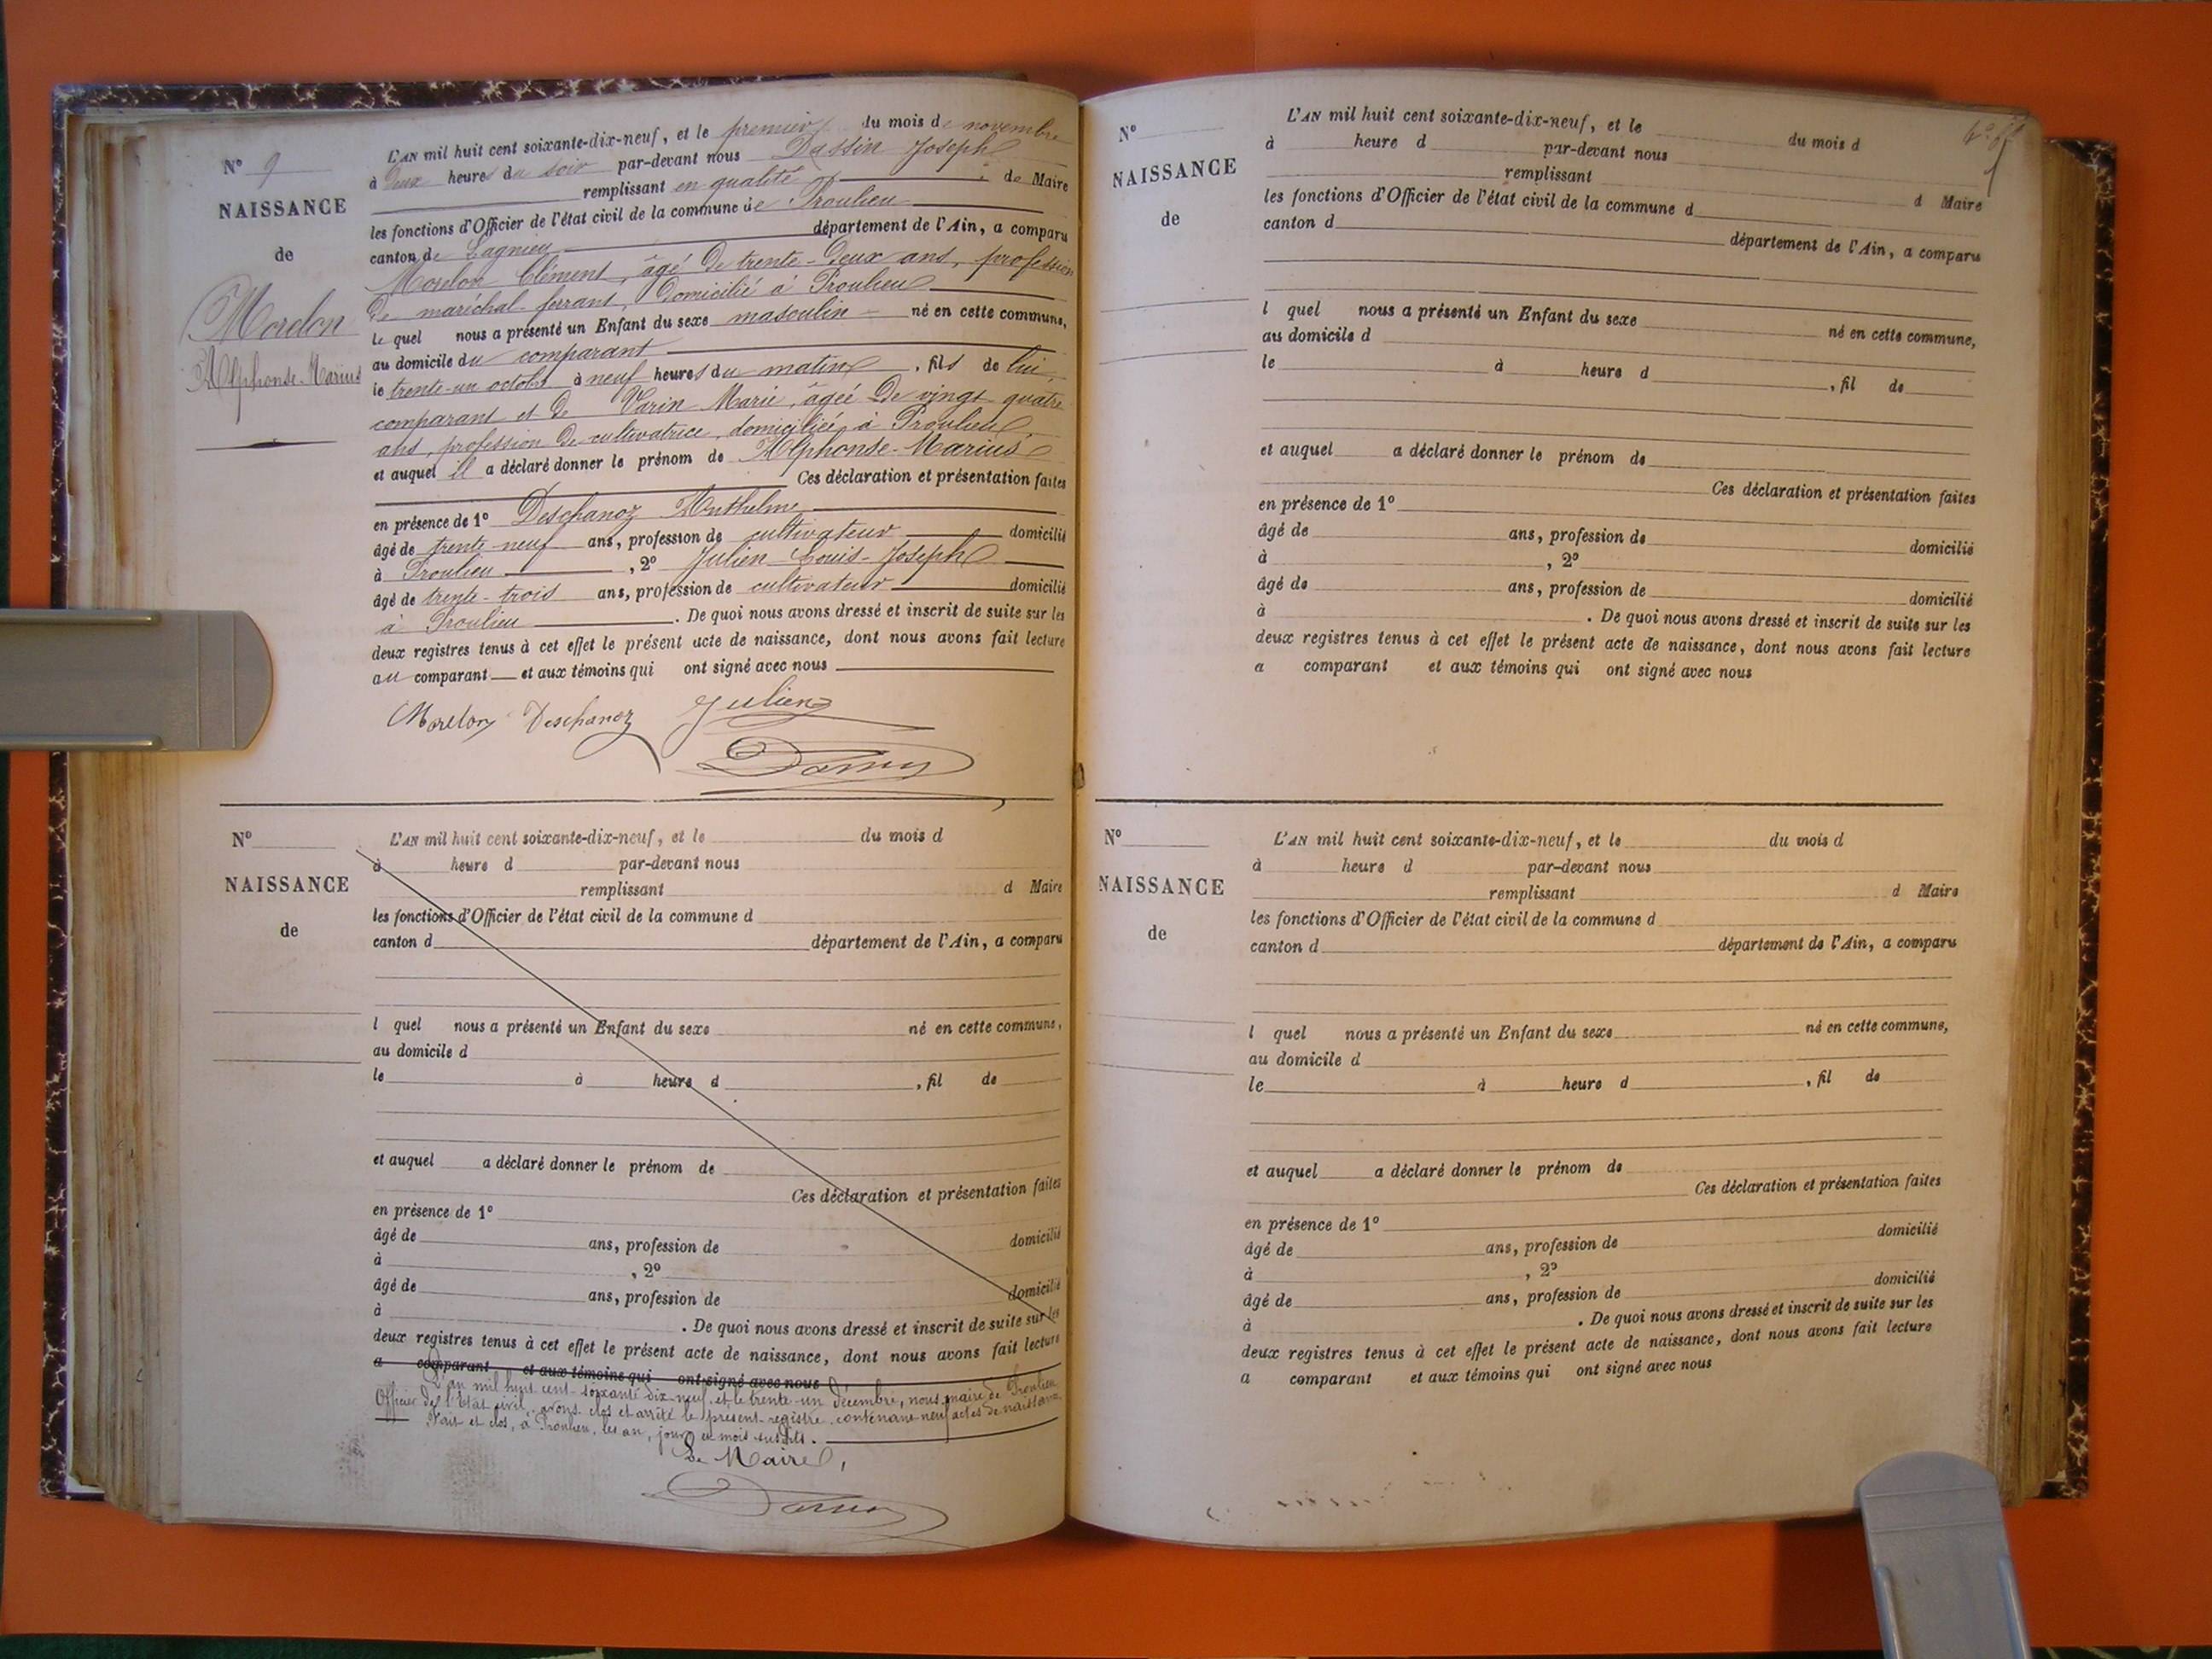 N° 9
NAISSANCE
de
Morelon
Alphonse-Marius
L'AN mil huit cent soixante-dix-neuf, et le premier du mois de novembre
à deux heures du soir par-devant nous Dassin Joseph
remplissant en qualité de Maire
les fonctions d'Officier de l'état civil de la commune de Proulieu
canton de Lagnieu département de l'Ain, a comparu
Morelon Clément, âgé de trente-deux ans, profession
de maréchal-ferrant, domicilié à Proulieu
le quel nous a présenté un Enfant du sexe masculin né en cette commune,
au domicile du comparant
le trente-un octobre à neuf heures du matin, fils de lui,
comparant et de Varin Marie, âgée de vingt quatre
ans, profession de cultivatrice, domiciliée à Proulieu,
et auquel il a déclaré donner le prénom de Alphonse-Marius
Ces déclaration et présentation faites
en présence de 1° Deschanoz Anthelme
âgé de trente neuf ans, profession de cultivateur domicilié
à Proulieu, 2° Julien Louis-Joseph
âgé de trente-trois ans, profession de cultivateur domicilié
à Proulieu. De quoi nous avons dressé et inscrit de suite sur les
deux registres tenus à cet effet le présent acte de naissance, dont nous avons fait lecture
au comparant et aux témoins qui ont signé avec nous
Morelon Deschanoz Julien
N°
NAISSANCE
de
L'AN mil huit cent soixante-dix-neuf, et le du mois d
à heure d par-devant nous
remplissant d Maire
les fonctions d'Officier de l'état civil de la commune d
canton d département de l'Ain, a comparu
l quel nous a présenté un Enfant du sexe né en cette commune,
au domicile d
le à heure d , fil de
et auquel a déclaré donner le prénom de
Ces déclaration et présentation faites
en présence de 1°
âgé de ans, profession de domicilié
à , 2°
âgé de ans, profession de domicilié
à . De quoi nous avons dressé et inscrit de suite sur les
deux registres tenus à cet effet le présent acte de naissance, dont nous avons fait lecture
a comparant et aux témoins qui ont signé avec nous
L'an mil huit cent soixante dix-neuf, et le trente-un décembre, nous maire de Proulieu
Officier de l'Etat civil, avons clos et arrêté le présent registre contenant neuf actes de naissance
Fait et clos, à Proulieu, les an, jour et mois susdits.
Le Maire,
N°
NAISSANCE
de
L'AN mil huit cent soixante-dix-neuf, et le du mois d
à heure d par-devant nous
remplissant d Maire
les fonctions d'Officier de l'état civil de la commune d
canton d département de l'Ain, a comparu
l quel nous a présenté un Enfant du sexe né en cette commune,
au domicile d
le à heure d , fil de
et auquel a déclaré donner le prénom de
Ces déclaration et présentation faites
en présence de 1°
âgé de ans, profession de domicilié
à , 2°
âgé de ans, profession de domicilié
à . De quoi nous avons dressé et inscrit de suite sur les
deux registres tenus à cet effet le présent acte de naissance, dont nous avons fait lecture
a comparant et aux témoins qui ont signé avec nous
N°
NAISSANCE
de
L'AN mil huit cent soixante-dix-neuf, et le du mois d
à heure d par-devant nous
remplissant d Maire
les fonctions d'Officier de l'état civil de la commune d
canton d département de l'Ain, a comparu
l quel nous a présenté un Enfant du sexe né en cette commune,
au domicile d
le à heure d , fil de
et auquel a déclaré donner le prénom de
Ces déclaration et présentation faites
en présence de 1°
âgé de ans, profession de domicilié
à , 2°
âgé de ans, profession de domicilié
à . De quoi nous avons dressé et inscrit de suite sur les
deux registres tenus à cet effet le présent acte de naissance, dont nous avons fait lecture
a comparant et aux témoins qui ont signé avec nous